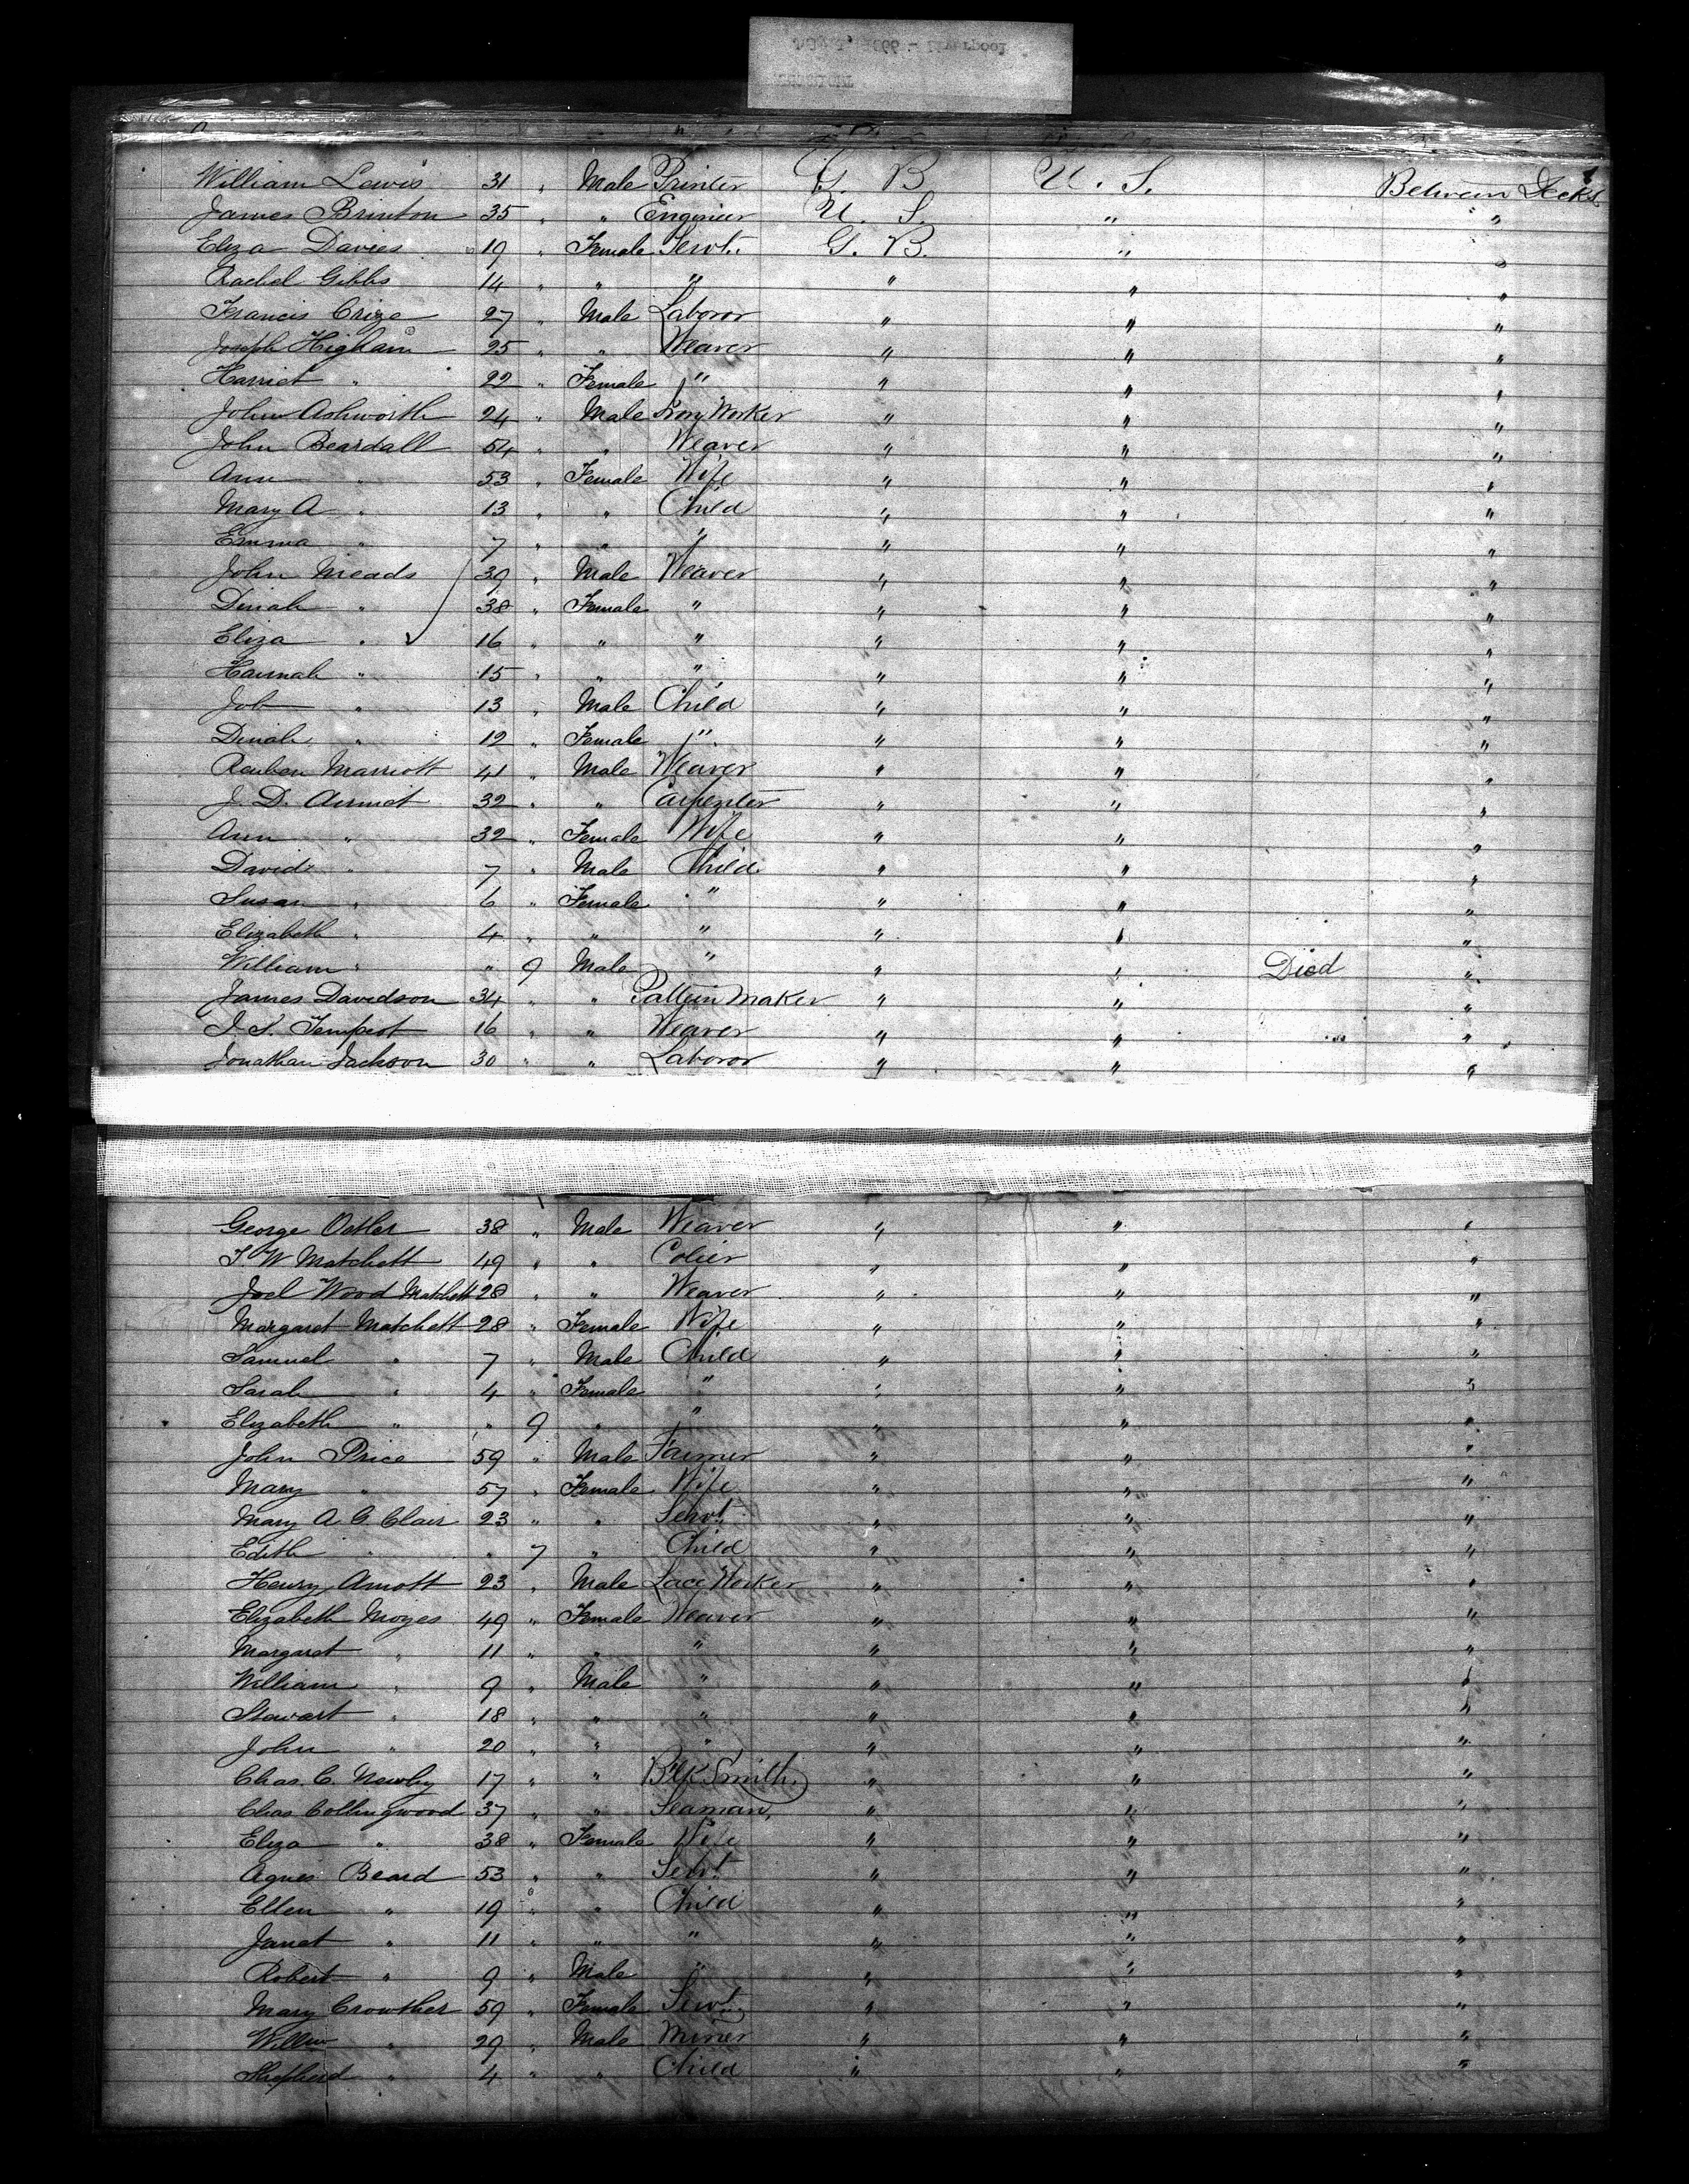 William Lewis 31 " Male Printer G. B U. S. Between Decks
James Brinton 35 " " Engineer U. S. " "
Eliza Davies 19 " Female Servt. G. B. " "
Rachel Gibbs 14 " " " " " "
Francis Crize 27 " Male Laboror " " "
Joseph Higham 25 " " Weaver " " "
Harriet " 22 " Female " " " "
John Ashworth 24 " Male Iron Worker " " "
John Beardall 54 " " Weaver " " "
Ann " 53 " Female Wife " " "
Mary A " 13 " " Child " " "
Emma " 7 " " " " " "
John Meads 39 " Male Weaver " " "
Dinah " 38 " Female " " " "
Eliza " 16 " " " " " "
Hannah " 15 " " " " " "
Job " 13 " Male Child " " "
Dinah " 12 " Female " " " "
Reuben Marriott 41 " Male Weaver " " "
J. D. 32 " " Carpenter " " "
Ann " 32 " Female Wife " " "
David " 7 " Male Child " " "
Susan " 6 " Female " " " "
Elizabeth " 4 " " " " " "
William " " 9 Male " " " Died "
James Davidson 34 " " Pattern Maker " " "
J. S. Tempest 16 " " Weaver " " "
Jonathan Jackson 30 " " Laboror " " "
George Ostler 38 " Male Weaver " " "
T W Matchett 49 " " Colier " " "
Joel Wood Matchett 28 " " Weaver " " "
Margaret Matchett 28 " Female Wife " " "
Samuel " 7 " Male Child " " "
Sarah " 4 " Female " " " "
Elizabeth " " 9 " " " " "
John Price 59 " Male Farmer " " "
Mary " 57 " Female Wife " " "
Mary A. C. Clair 23 " " Servt. " " "
Edith " " 7 " Child " " "
Henry Arnott 23 " Male Lace Worker " " "
Elizabeth Moyes 49 " Female Weaver " " "
Margaret " 11 " " " " " "
William " 9 " Male " " " "
Stewart " 18 " " " " " "
John " 20 " " " " " "
Chas. C. Newby 17 " " Blk Smith " " "
Chas Collingwood 37 " " Seaman " " "
Eliza " 38 " Female Wife " " "
Agnes Beard 53 " " Servt " " "
Ellen " 19 " " Child " " "
Janet " 11 " " " " " "
Robert " 9 " Male " " " "
Mary Crowther 59 " Female Servt. " " "
Willm " 29 " Male Miner " " "
Shepherd " 4 " " Child " " "